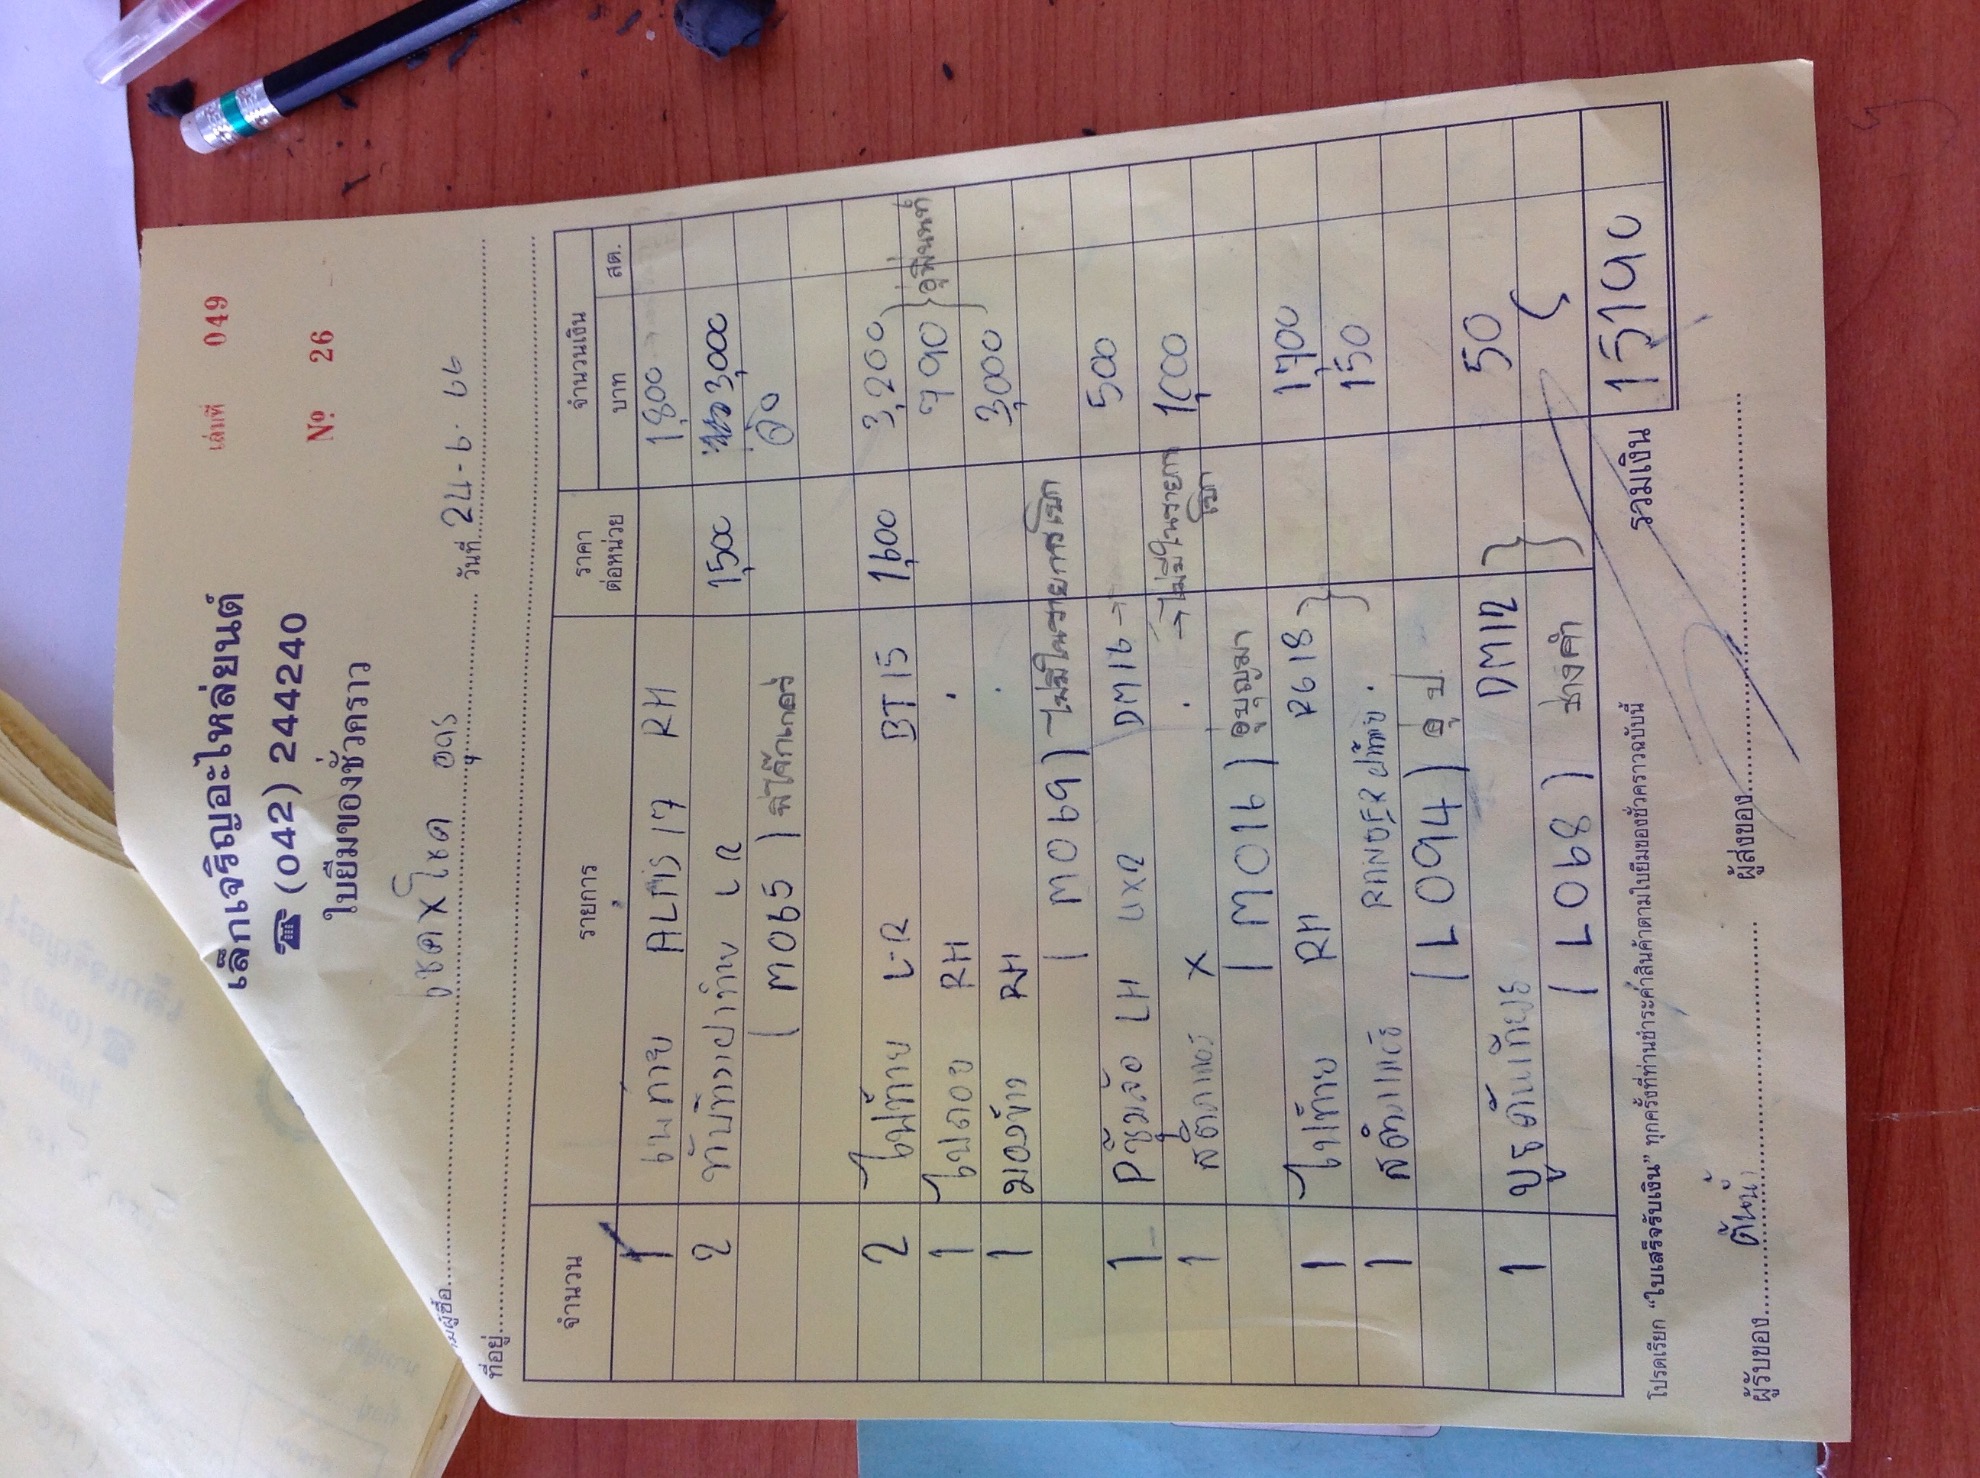 เล่มที่ 049
เล็กเจริญอะไหล่ยนต์
☎ (042) 244240
Nº 26
ใบยืมของชั่วคราว
นามผู้ซื้อ โชค X โชค อุดร วันที่ 24-6-66
ที่อยู่
จำนวน รายการ ราคาต่อหน่วย จำนวนเงิน
บาท สต.
1 ALTIS 17 RH 1,800
2 ทับทิมฝาท้าย L R 1,500 3,000
( M065 )
2 ไฟท้าย L-R BT 15 1,600 3,200
1 ไฟลอย RH 790
1 มองข้าง RH 3,000
( M069 ) ไม่มีในรายการเบิก
1 คิ้วซุ้มล้อ LH DM16 500
1 X ไม่มีในรายการเบิก 1,000
( M016 )
1 ไฟท้าย RH RG18 1,700
1 RANGER 150
( L094 )
1 DM12 50
( L068 ) ช่างคำ
รวมเงิน 15190
โปรดเรียก “ใบเสร็จรับเงิน” ทุกครั้งที่ท่านชำระค่าสินค้าตามใบยืมของชั่วคราวฉบับนี้
ผู้รับของ ผู้ส่งของ